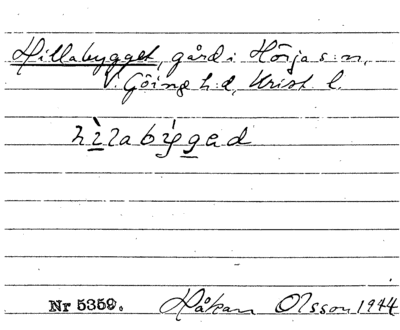 Hillabygget, gård i Hörja s:n,
V. Göinge h:d, Krist. l.
hìlabýgad
Nr 5359. Håkan Olsson 1944